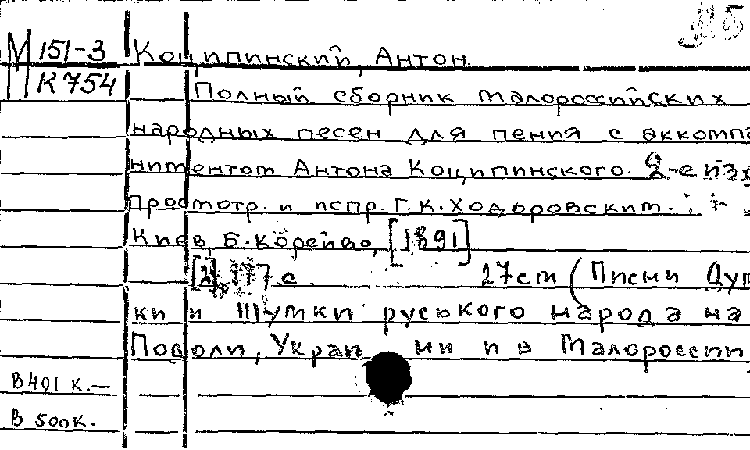 М 151-3 Коципинский, Антон.
К 754
Полный сборник малороссийских
народных песен для пения с аккомпа
ниментом Антона Коципинского. 2-е изд
просмотр. и испр. Г.К. Ходоровским.
Киев, Б. Корейво, [1891]
27 см (Писни Дум
ки и Шутки руського народа на
Подоли, Украи ни и в Малороссии,
В 401 к.—
В 500к.